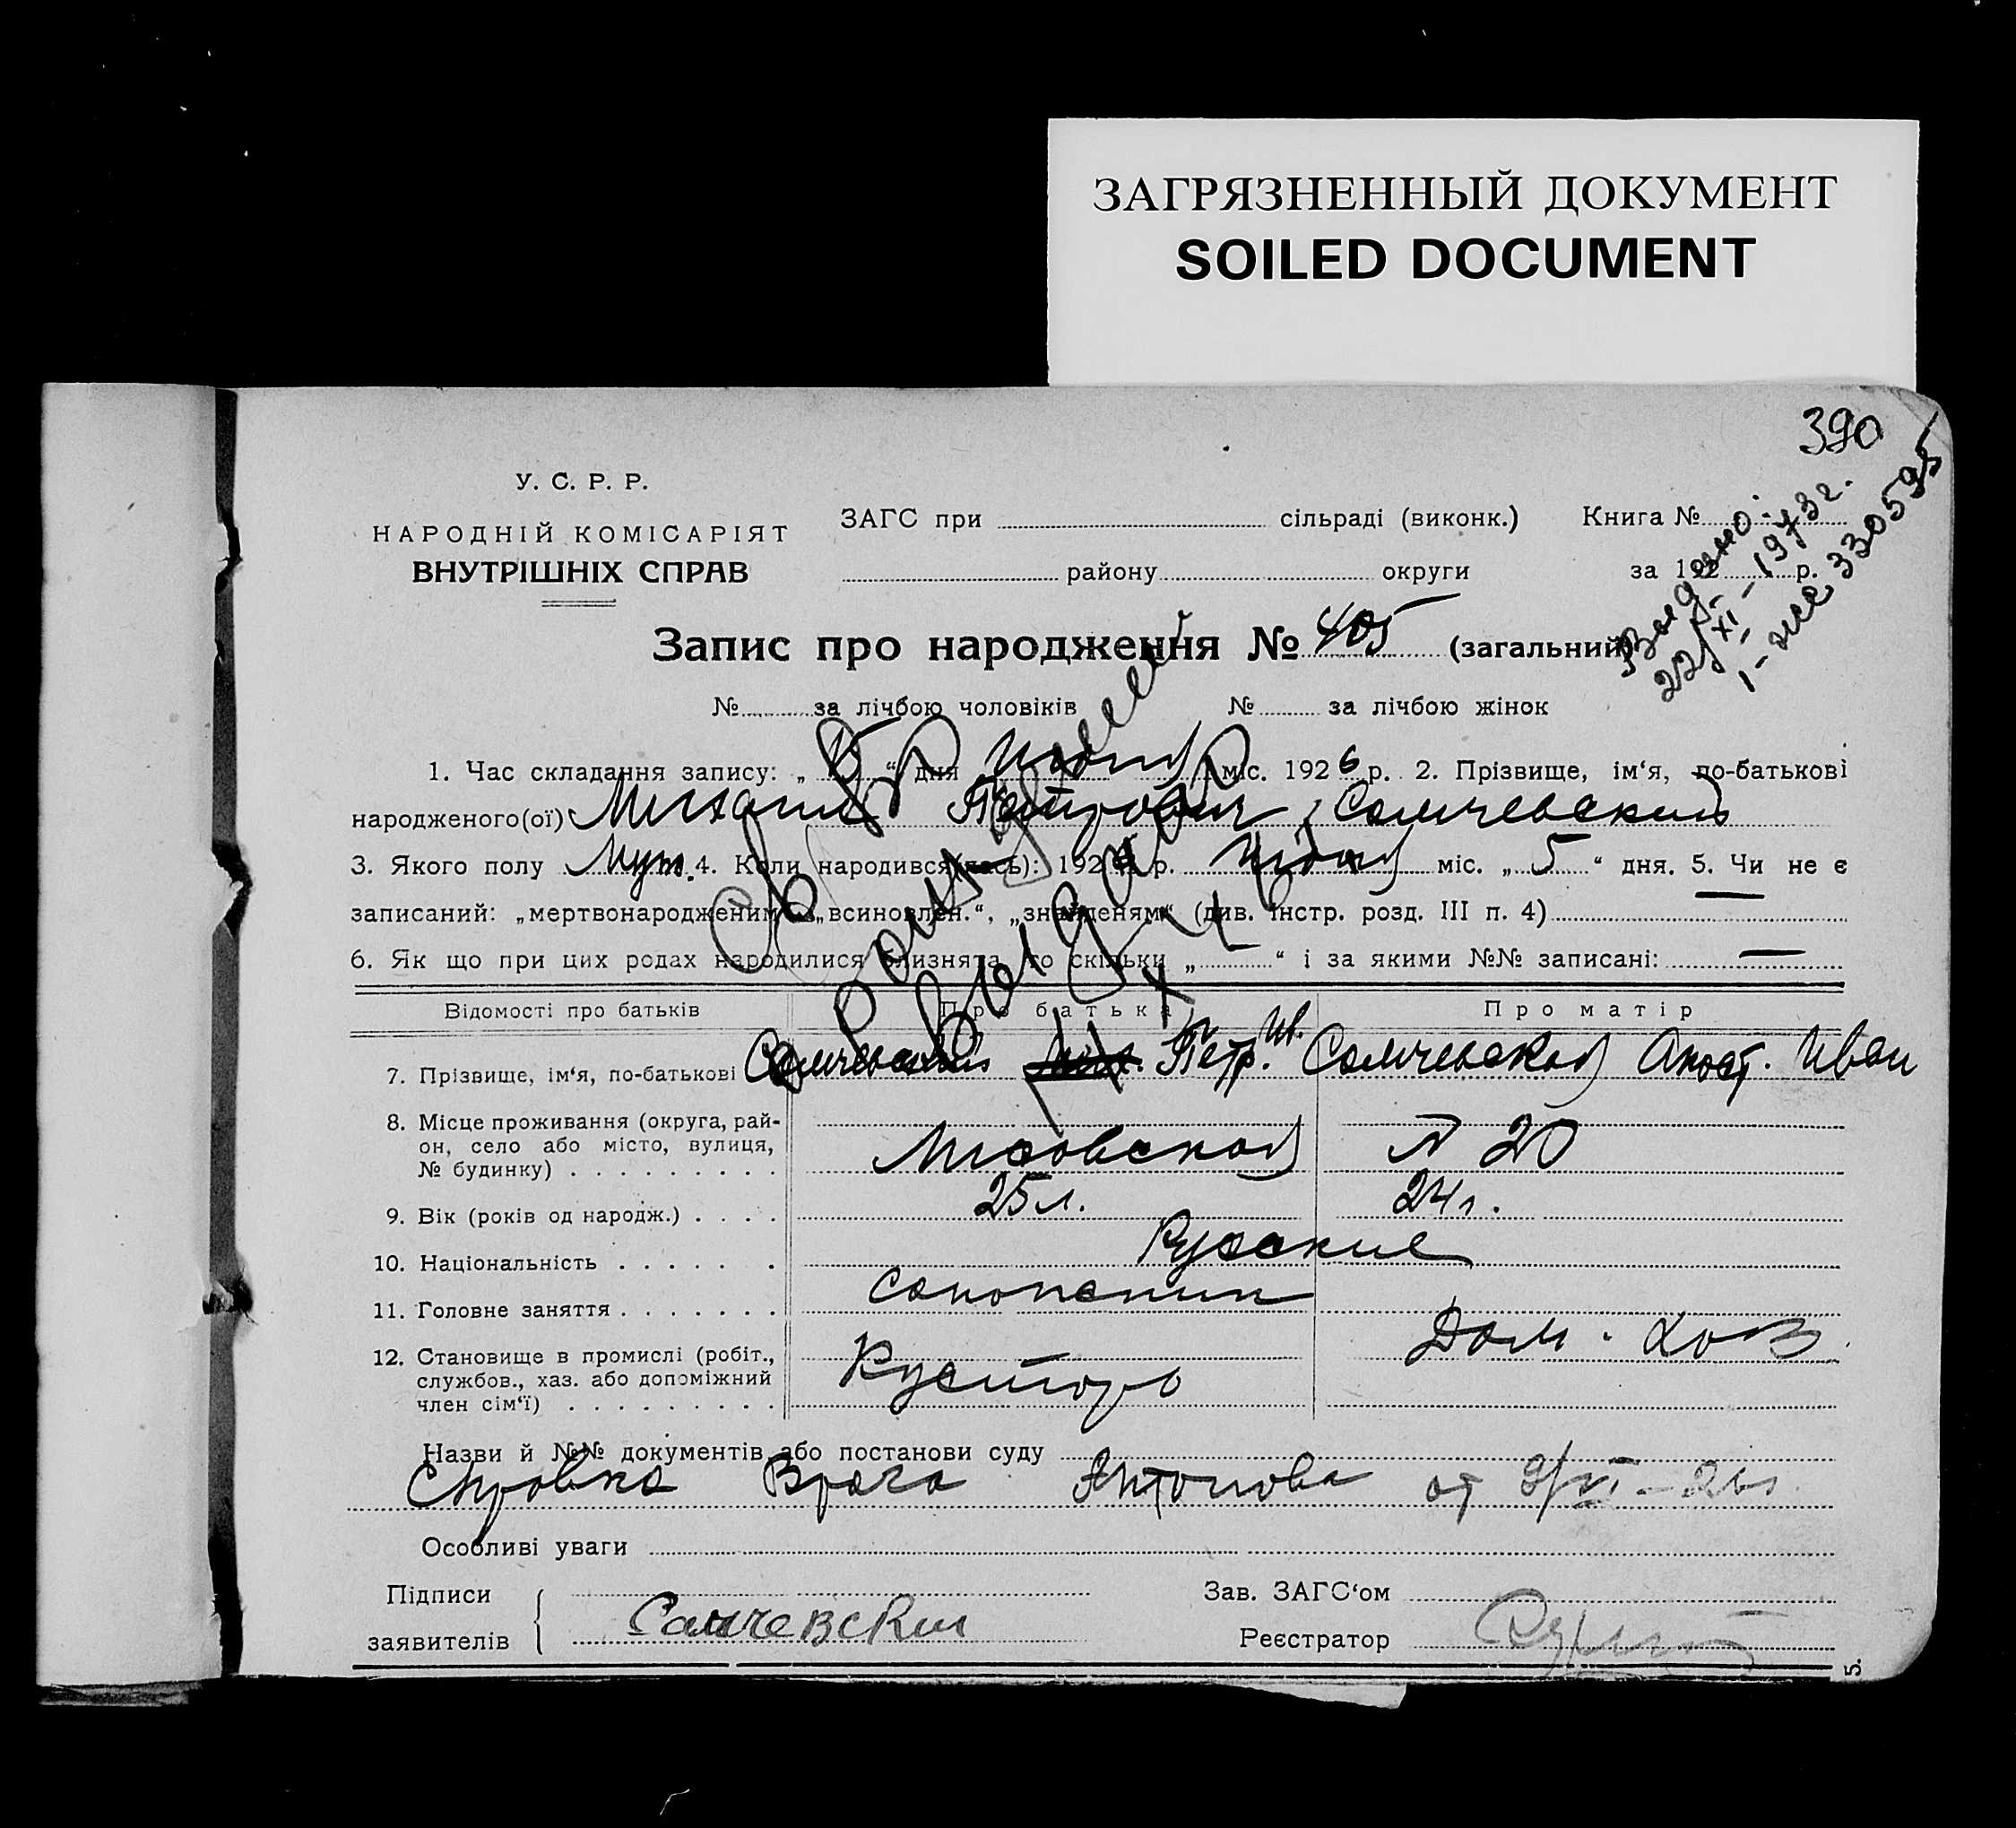 ЗАГРЯЗНЕННЫЙ ДОКУМЕНТ
SOILED DOCUMENT
390
У. С. Р. Р.
НАРОДНІЙ КОМІСАРІЯТ
ВНУТРІШНІХ СПРАВ
ЗАГС при сільраді (виконк.)
району округи
Книга №
за 192 р.
Запис про народження № 405 (загальний)
№ за лічбою чоловіків № за лічбою жінок
1. Час складання запису: „ “ дня міс. 1926 р. 2. Прізвище, ім‘я, по-батькові
народженого(ої) Михаил Петрович Самчевский
3. Якого полу Муж. 4. Коли народився(лась): 192 р. міс. „ 5 “ дня. 5. Чи не є
записаний: „мертвонародженим“, „всиновлен.“, „знайденям“ (див. інстр. розд. III п. 4) —
6. Як що при цих родах народилися близнята, то скільки „ “ і за якими №№ записані: —
Відомості про батьків Про батька Про матір
7. Прізвище, ім‘я, по-батькові Самчевский Петр. Ив. Самчевская Анаст. Иван
8. Місце проживання (округа, рай-
он, село або місто, вулиця,
№ будинку) № 20
9. Вік (років од народж.) 25 л. 24 г.
10. Національність Русские
11. Головне заняття сапожник
12. Становище в промислі (робіт.,
службов., хаз. або допоміжний
член сім‘ї) Кустарь Дом. хоз
Назви й №№ документів або постанови суду
Справка Врача Антонова от 9/VI-26 г.
Особливі уваги
Підписи
заявителів Самчевский
Зав. ЗАГС‘ом
Реєстратор
5.
Св о рождении
Выдано
Выдано:
22/XI-1973г.
330595